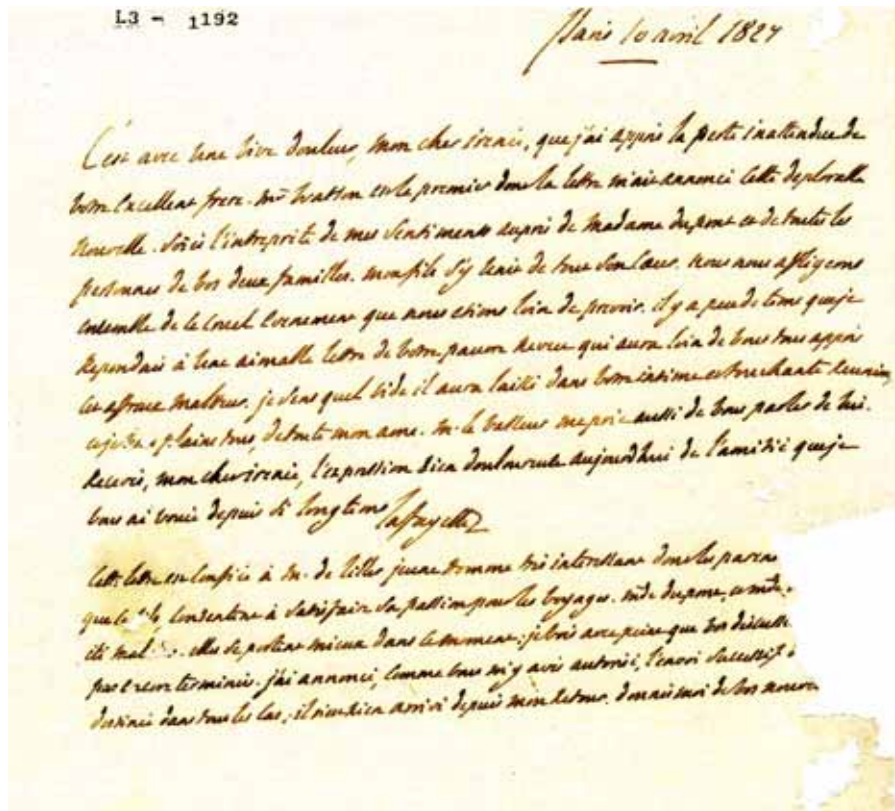 L3 - 1192
Paris 10 avril 1827
C'est avec une vive douleur, mon cher irenée, que j'ai appris la perte inattendue de
votre excellent frere. mr Watson est le premier dont la lettre m'ait annoncé cette deplorable
nouvelle. soiés l'interprête de mes sentiments auprès de Madame dupont et de toutes les
personnes de vos deux familles. mon fils s'y unit de tout son coeur. nous nous affligeons
ensemble de ce cruel evenement que nous etions loin de prevoir. il y a peu de tems que je
repondais à une aimable lettre de votre pauvre neveu qui aura loin de vous tous appris
cet affreux malheur. je sens quel vide il aura laissé dans votre intime et touchante reunion
et je plains tous, de toute mon ame. mr le vasseur me prie aussi de vous parler de lui.
Recevés, mon cher irenée, l'expression bien douloureuse aujourdhui de l'amitié que je
vous ai vouée depuis si longtems
lafayette
Cette lettre est confiée à mr de jeune homme très interessant dont les paren
que ce consentent à satisfaire sa passion pour les voyages. mde dupont, et mde
été mal elles se portent mieux dans ce moment; je vois avec peine que vos
pas encore terminées. j'ai annoncé, comme vous m'y avés autorisé, l'envoi successif
destiné dans tous les cas; il n'est rien arrivé depuis mon retour. donnés moi de vos nouve